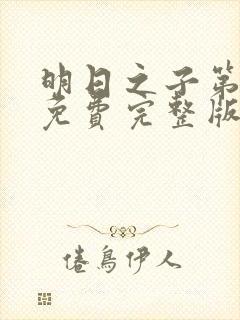 明日之子第
免費完整版
倦鳥伊人